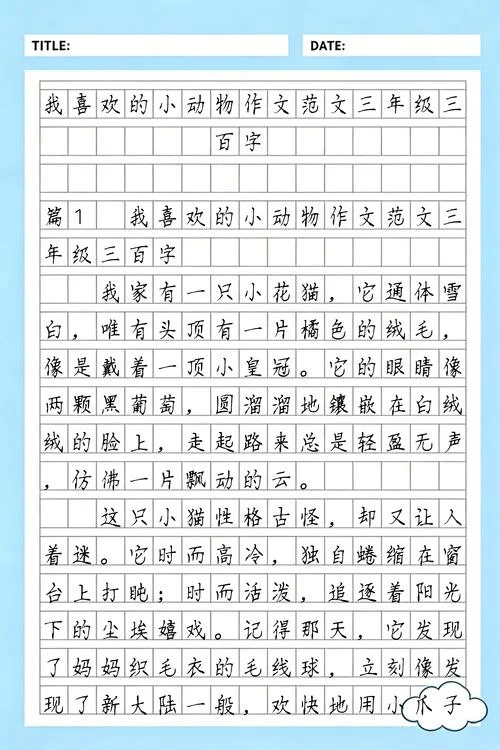 TITLE:
DATE:
我喜欢的小动物作文范文三年级三
百字
篇1 我喜欢的小动物作文范文三
年级三百字
我家有一只小花猫，它通体雪
白，唯有头顶有一片橘色的绒毛，
像是戴着一顶小皇冠。它的眼睛像
两颗黑葡萄，圆溜溜地镶嵌在白绒
绒的脸上，走起路来总是轻盈无声
，仿佛一片飘动的云。
这只小猫性格古怪，却又让人
着迷。它时而高冷，独自蜷缩在窗
台上打盹；时而活泼，追逐着阳光
下的尘埃嬉戏。记得那天，它发现
了妈妈织毛衣的毛线球，立刻像发
现了新大陆一般，欢快地用小爪子